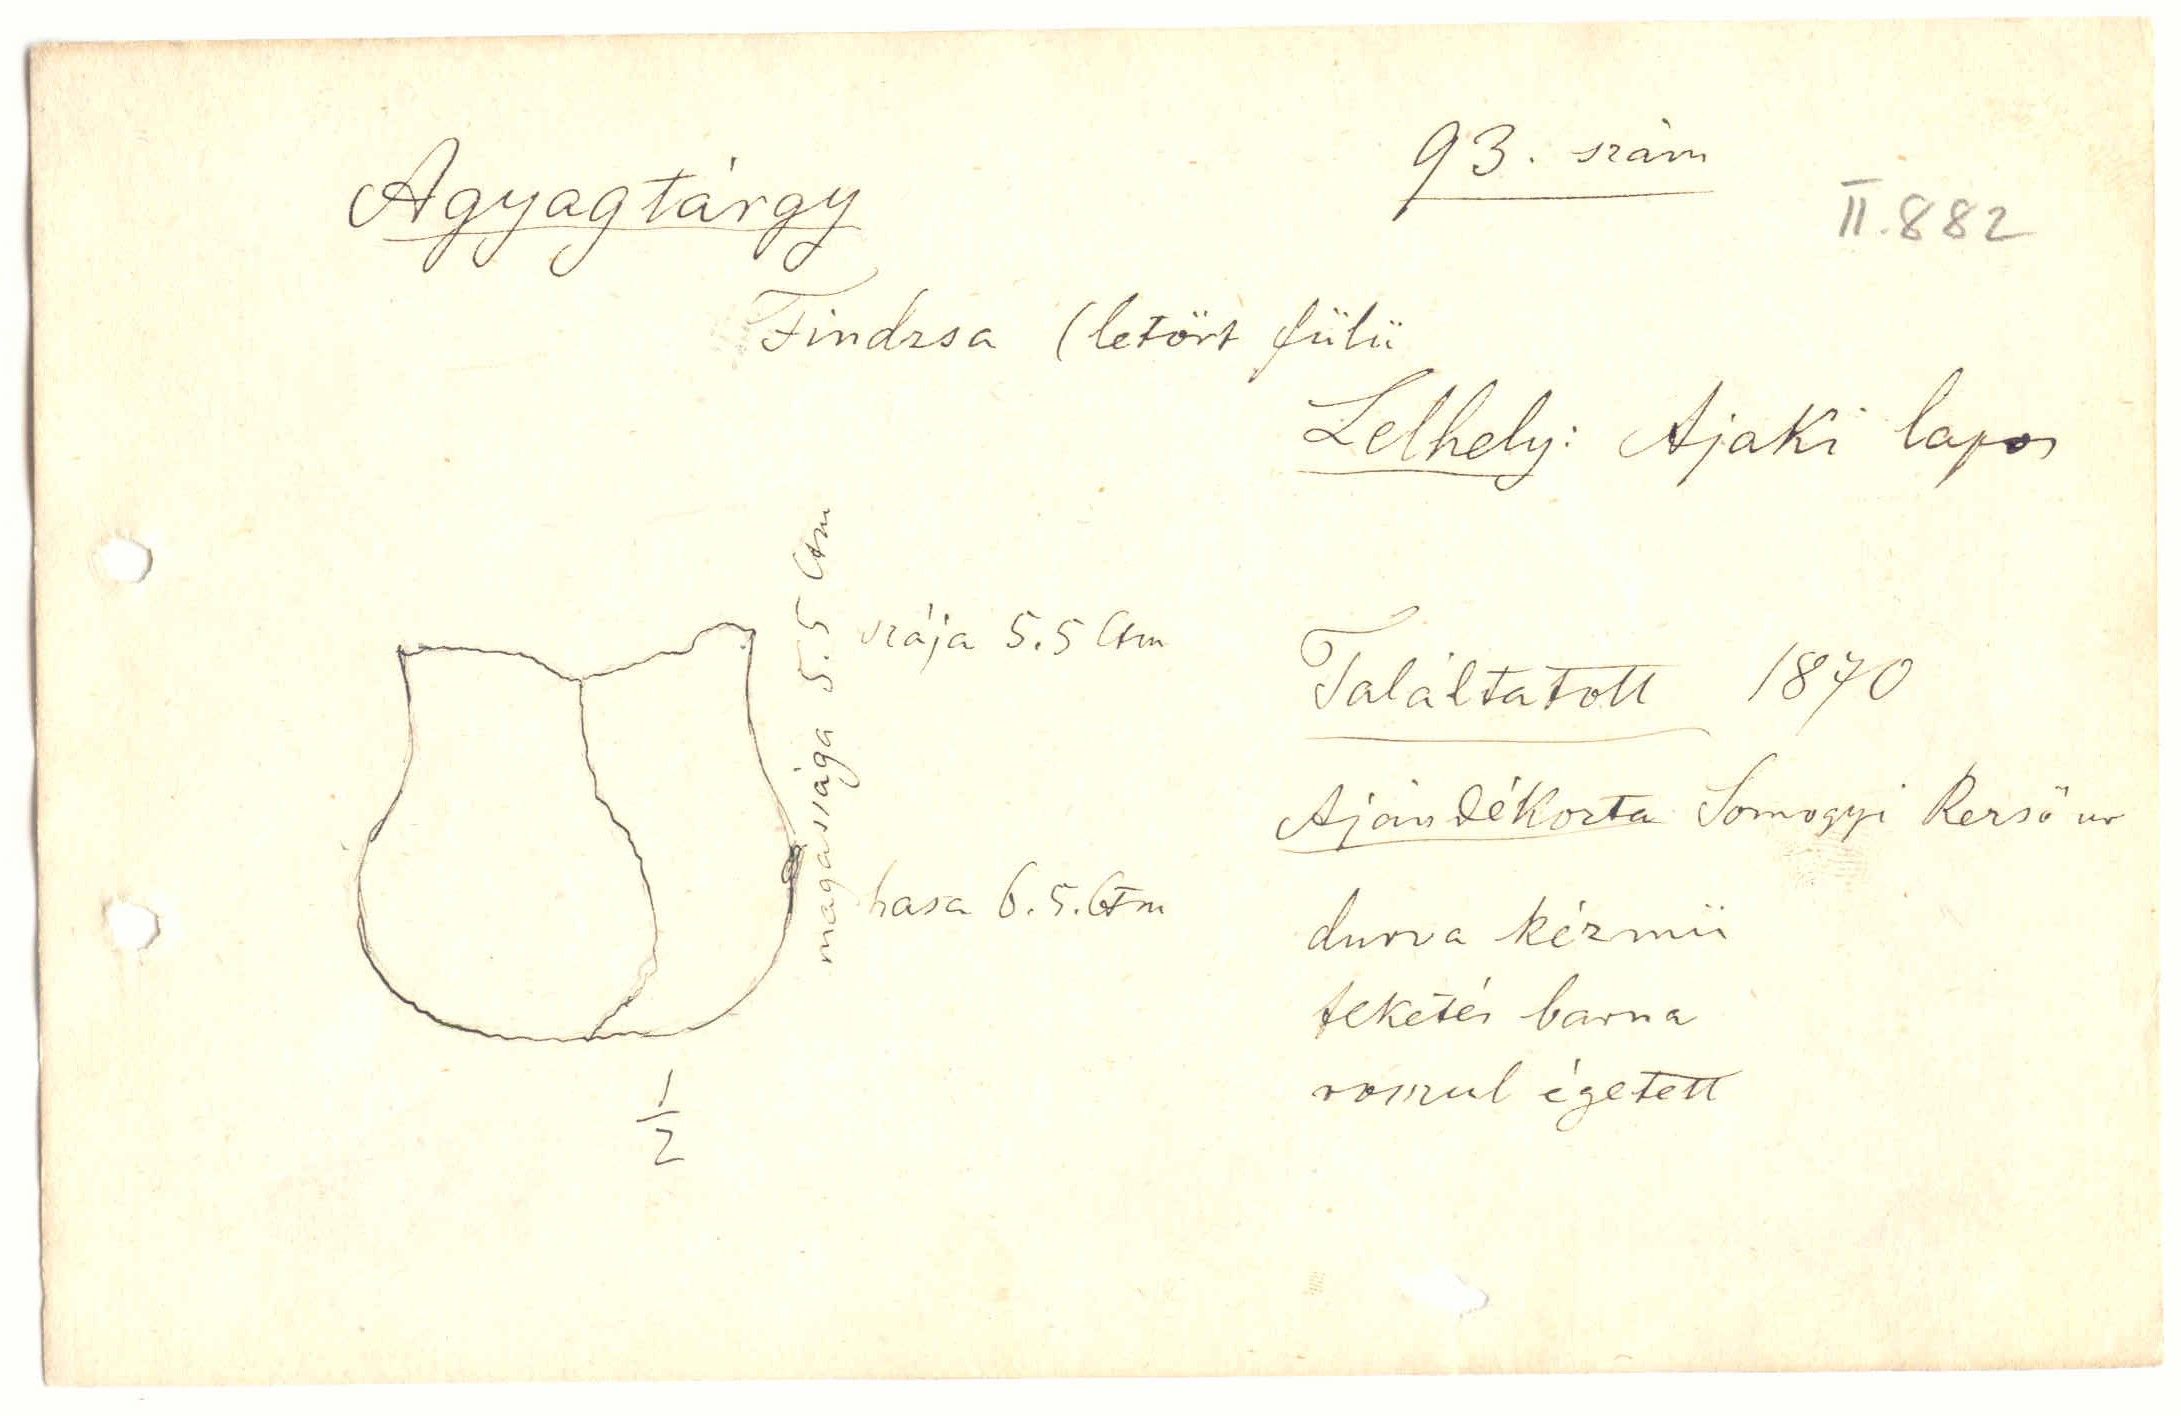 93. szám
II.882
Agyagtárgy
Findzsa (letört fülü
Lelhely: Ajaki lapos
magassága 5.5 Ctm
szája 5.5 Ctm
Találtatott 1870
Ajándékozta Somogyi Rezsö ur
hasa 6.5. Ctm
durva kézmü
feketés barna
rosszul égetett
1/2